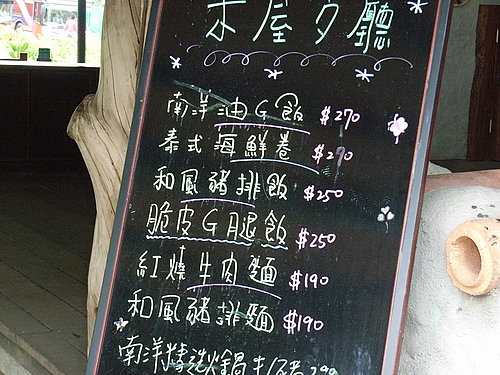 木屋夕廳
南洋油G飯 $270
泰式海鮮卷 $270
和風豬排飯 $250
脆皮G腿飯 $250
紅燒牛肉麵 $190
和風豬排麵 $190
南洋 火鍋